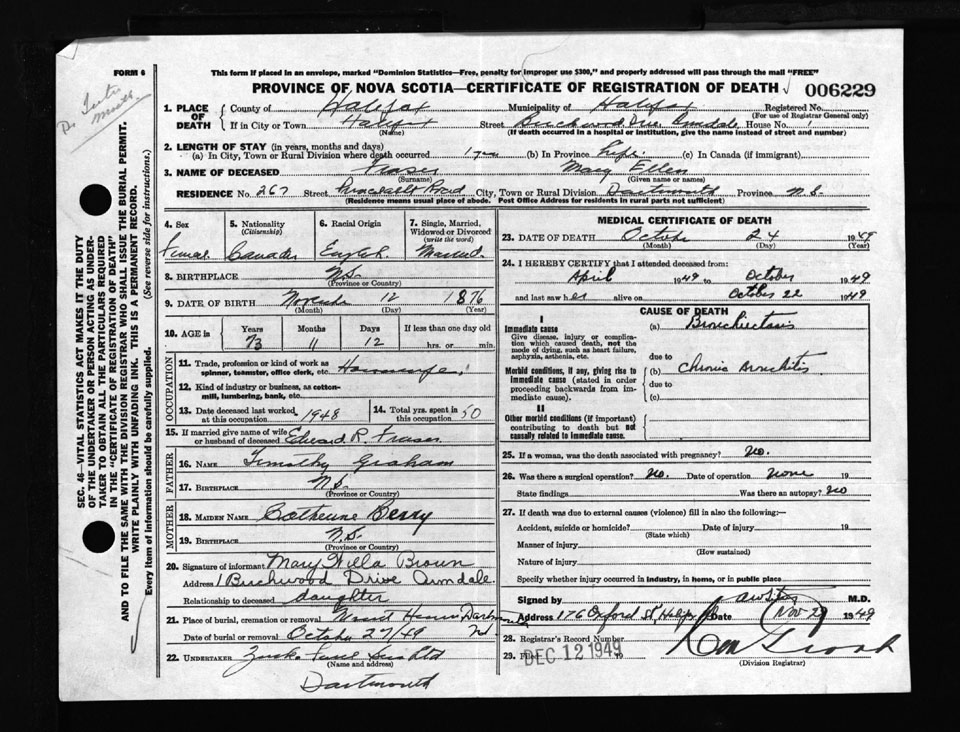 FORM 6
This form if placed in an envelope, marked "Dominion Statistics—Free, penalty for improper use $300," and properly addressed will pass through the mail "FREE"
PROVINCE OF NOVA SCOTIA—CERTIFICATE OF REGISTRATION OF DEATH 006229
1. PLACE OF DEATH County of Halifax Municipality of Halifax Registered No.
(For use of Registrar General only)
If in City or Town Halifax Street Birchwood Drive Armdale House No. 1
(Name) (If death occurred in a hospital or institution, give the name instead of street and number)
2. LENGTH OF STAY (in years, months and days)
(a) In City, Town or Rural Division where death occurred 1 year (b) In Province Life (c) In Canada (if immigrant)
3. NAME OF DECEASED Fraser Mary Ellen
(Surname) (Given name or names)
RESIDENCE No. 267 Street Road City, Town or Rural Division Dartmouth Province N.S.
(Residence means usual place of abode. Post Office Address for residents in rural parts not sufficient)
SEC. 46—VITAL STATISTICS ACT MAKES IT THE DUTY
OF THE UNDERTAKER OR PERSON ACTING AS UNDER-
TAKER TO OBTAIN ALL THE PARTICULARS REQUIRED
IN THE "CERTIFICATE OF REGISTRATION OF DEATH"
AND TO FILE THE SAME WITH THE DIVISION REGISTRAR WHO SHALL ISSUE THE BURIAL PERMIT.
WRITE PLAINLY WITH UNFADING INK. THIS IS A PERMANENT RECORD.
Every item of information should be carefully supplied. (See reverse side for instructions.)
4. Sex 5. Nationality (Citizenship) 6. Racial Origin 7. Single, Married, Widowed or Divorced (write the word)
Female Canadian English Married
8. BIRTHPLACE N.S.
(Province or Country)
9. DATE OF BIRTH November 12 1876
(Month) (Day) (Year)
10. AGE is Years Months Days If less than one day old
73 11 12 hrs. or min.
OCCUPATION
11. Trade, profession or kind of work as spinner, teamster, office clerk, etc. Housewife
12. Kind of industry or business, as cotton-mill, lumbering, bank, etc.
13. Date deceased last worked at this occupation 1948 14. Total yrs. spent in this occupation 50
15. If married give name of wife or husband of deceased Edward R. Fraser
FATHER
16. NAME Timothy Graham
17. BIRTHPLACE N.S.
(Province or Country)
MOTHER
18. MAIDEN NAME Catherine Berry
19. BIRTHPLACE N.S.
(Province or Country)
20. Signature of informant Mary Willa Brown
Address 1 Birchwood Drive Armdale.
Relationship to deceased daughter
21. Place of burial, cremation or removal Mount Hermon Dartmouth
Date of burial or removal October 27/49
22. UNDERTAKER
(Name and address)
Dartmouth
MEDICAL CERTIFICATE OF DEATH
23. DATE OF DEATH October 24 1949
(Month) (Day) (Year)
24. I HEREBY CERTIFY that I attended deceased from:
April 1949 to October 1949
and last saw her alive on October 22 1949
CAUSE OF DEATH
I
Immediate cause (a) Bronchiectasis
Give disease, injury or complication which caused death, not the mode of dying, such as heart failure, asphyxia, asthenia, etc.
due to
Morbid conditions, if any, giving rise to immediate cause (stated in order proceeding backwards from immediate cause).
(b) Chronic Bronchitis
due to
(c)
II
Other morbid conditions (if important) contributing to death but not causally related to immediate cause.
25. If a woman, was the death associated with pregnancy? No.
26. Was there a surgical operation? No. Date of operation none 19
State findings Was there an autopsy? No
27. If death was due to external causes (violence) fill in also the following:—
Accident, suicide or homicide? Date of injury 19
(State which)
Manner of injury
(How sustained)
Nature of injury
Specify whether injury occurred in industry, in home, or in public place
Signed by M.D.
Address 176 Oxford St. Date Nov 29 1949
28. Registrar's Record Number
29. Filed DEC 12 1949 19
(Division Registrar)